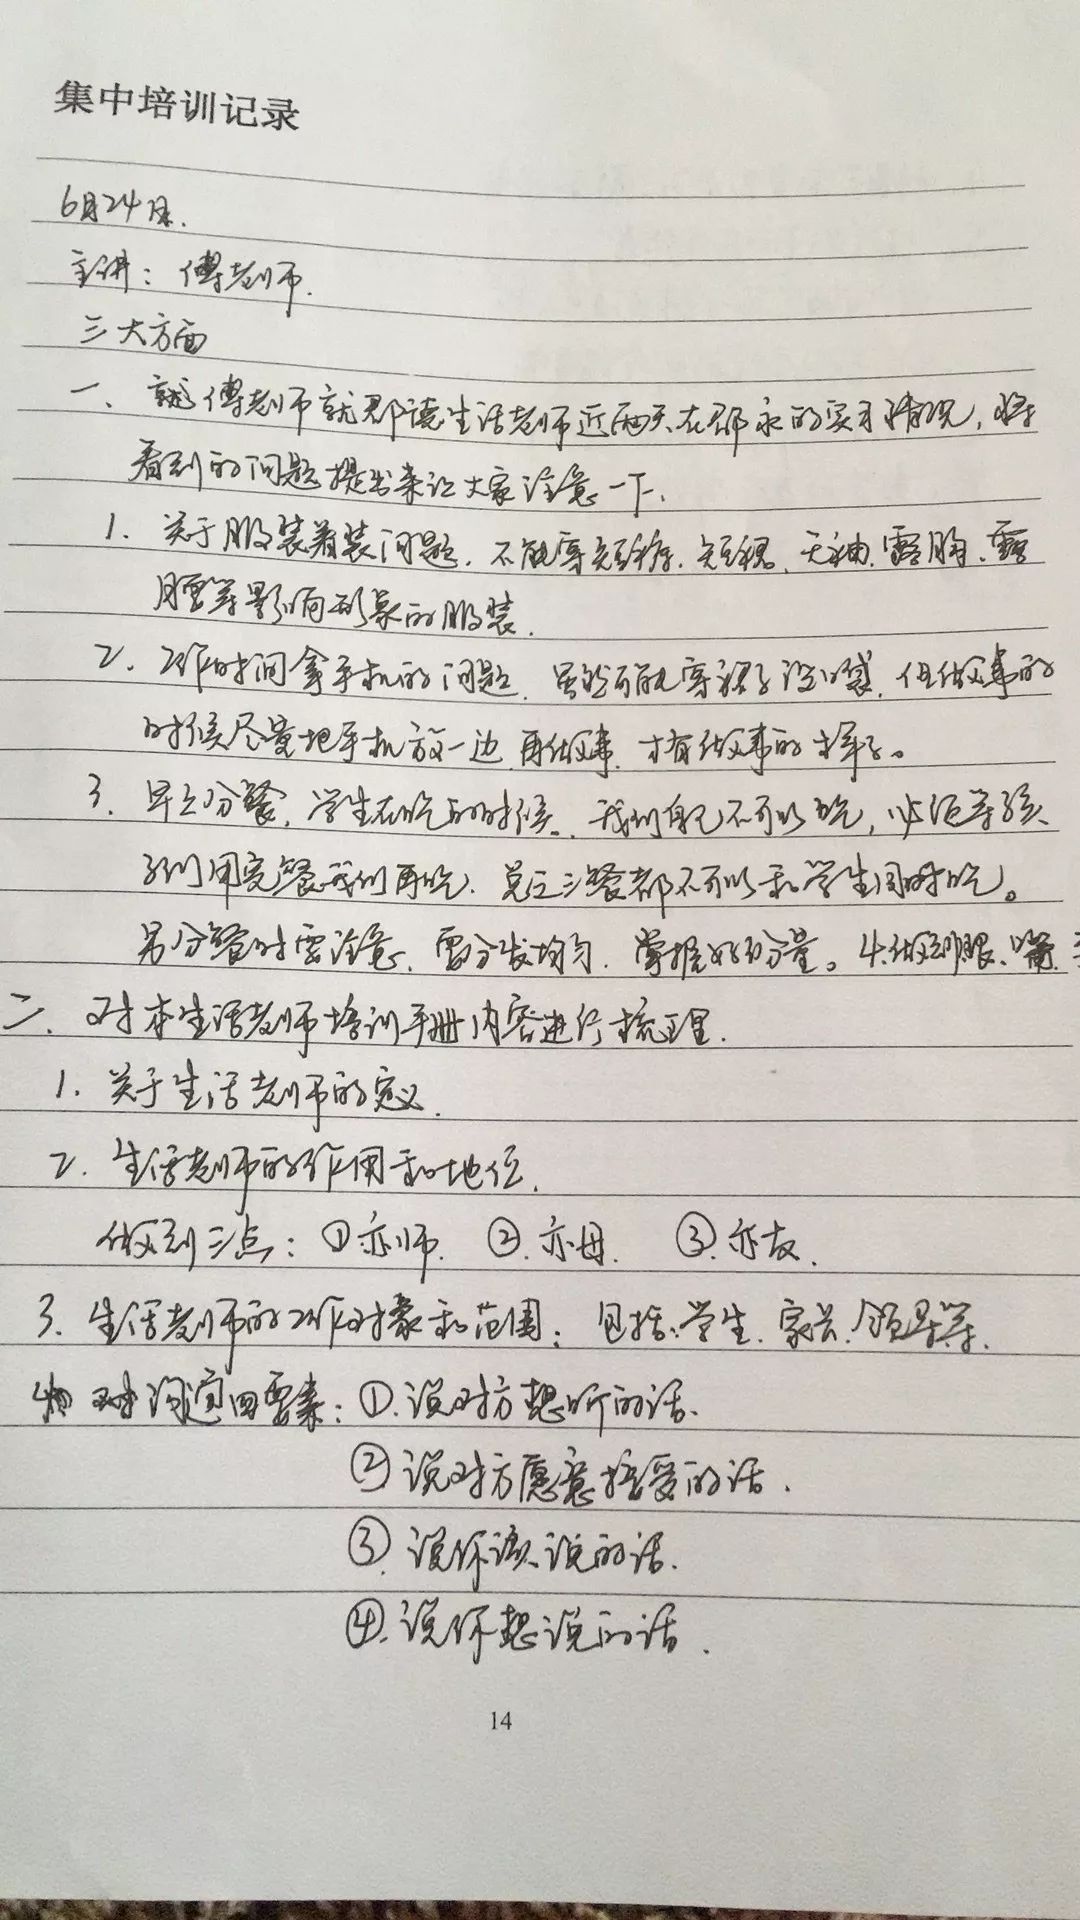 集中培训记录
6月24日.
主讲：傅老师.
三大方面
一、就傅老师就郡德生活老师近两天在郡永的实习情况，将
看到的问题提出来让大家注意一下.
1. 关于服装着装问题. 不能穿短裤. 短裙. 无袖. 露胸. 露
腰等影响形象的服装.
2. 工作时间拿手机的问题. 虽然可能穿裙子没口袋. 但做事的
时候尽量把手机放一边. 再做事. 才有做事的样子。
3. 早上分餐. 学生在吃的时候. 我们自己不可以吃，必须等孩
子们用完餐我们再吃. 总之三餐都不可以和学生同时吃。
另分餐时要注意. 要分发均匀. 掌握好份量。4.做到眼、嘴、
二. 对本生活老师培训手册内容进行梳理.
1. 关于生活老师的定义.
2. 生活老师的作用和地位.
做到三点：①亦师. ②.亦母. ③.亦友.
3. 生活老师的工作对象和范围：包括：学生. 家长. 领导等.
4. 沟通四要素：①.说对方想听的话.
②说对方愿意接受的话.
③.说你该说的话.
④.说你想说的话.
14